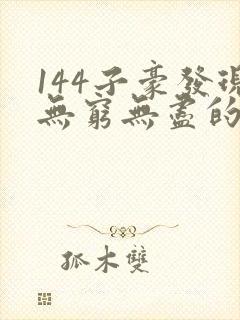 144子豪發現
無窮無盡的
孤木雙